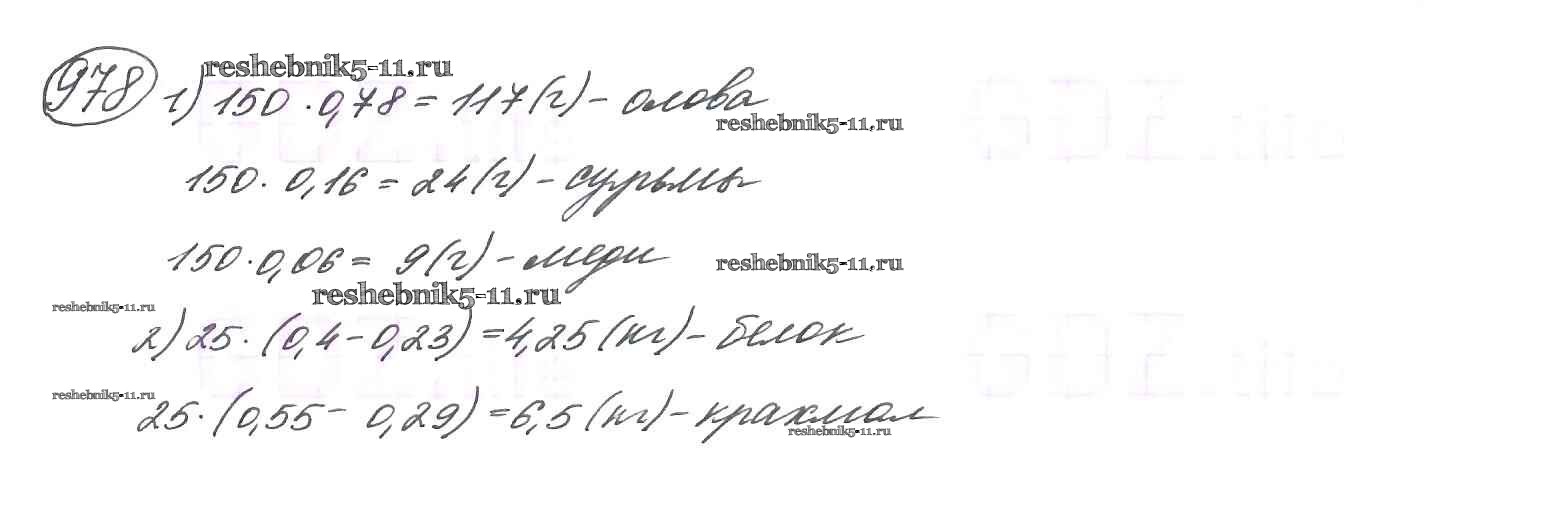 reshebnik5-11.ru
978 1) 150 · 0,78 = 117 (г) - олова
reshebnik5-11.ru
150 · 0,16 = 24 (г) - сурьмы
150 · 0,06 = 9 (г) - меди
reshebnik5-11.ru
reshebnik5-11.ru
reshebnik5-11.ru
2) 25 · (0,4 - 0,23) = 4,25 (кг) - белок
reshebnik5-11.ru
25 · (0,55 - 0,29) = 6,5 (кг) - крахмал
reshebnik5-11.ru